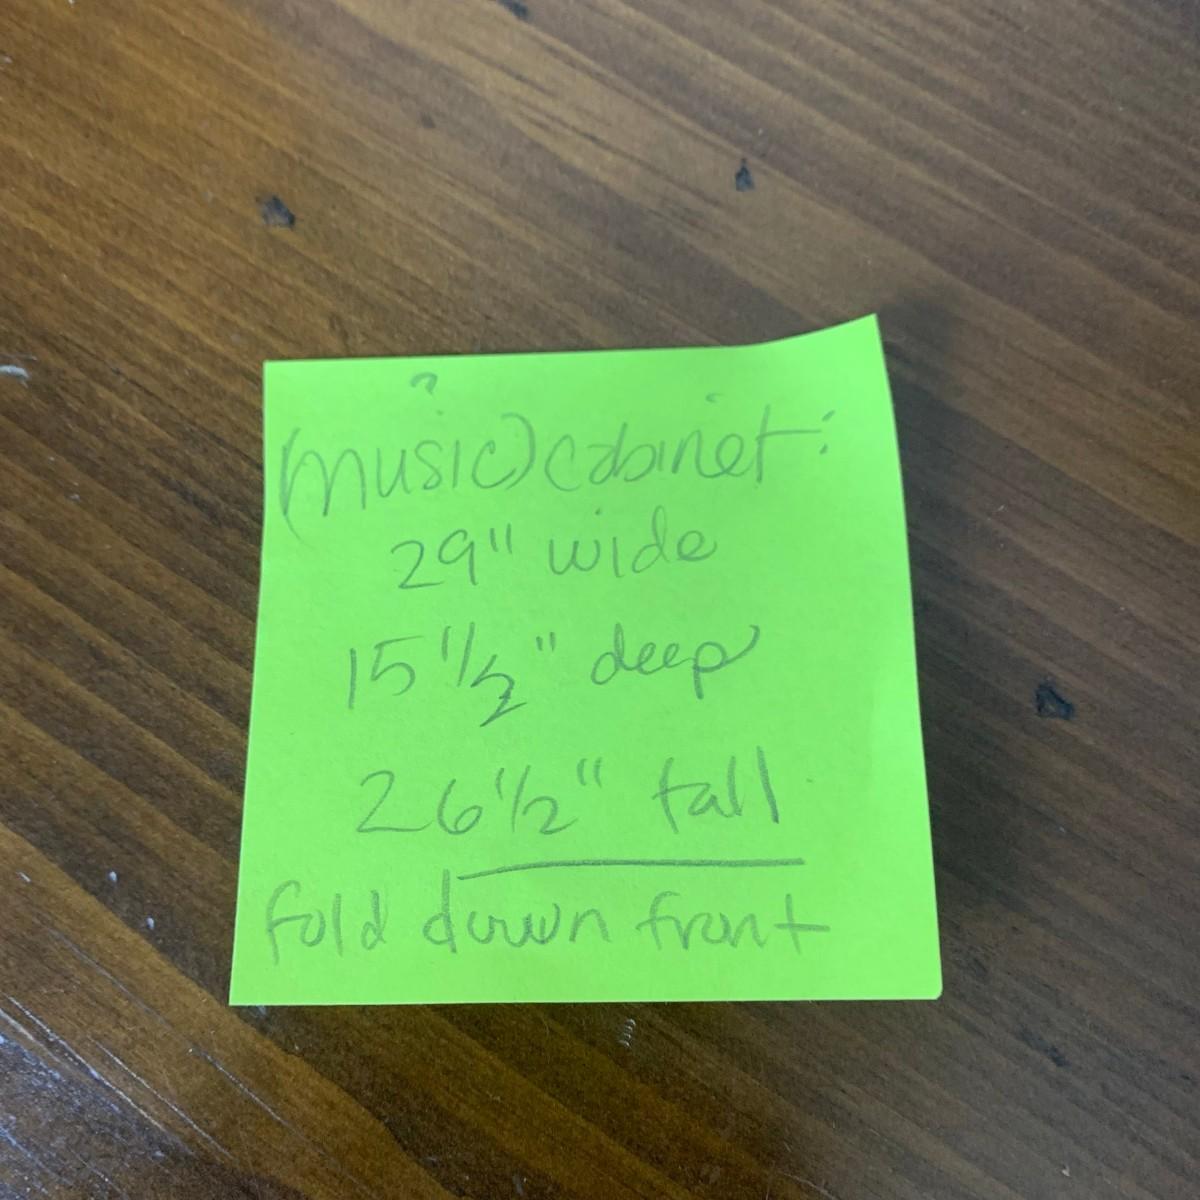 ?
(music) cabinet:
29" wide
15 1/2" deep
26 1/2" tall
fold down front